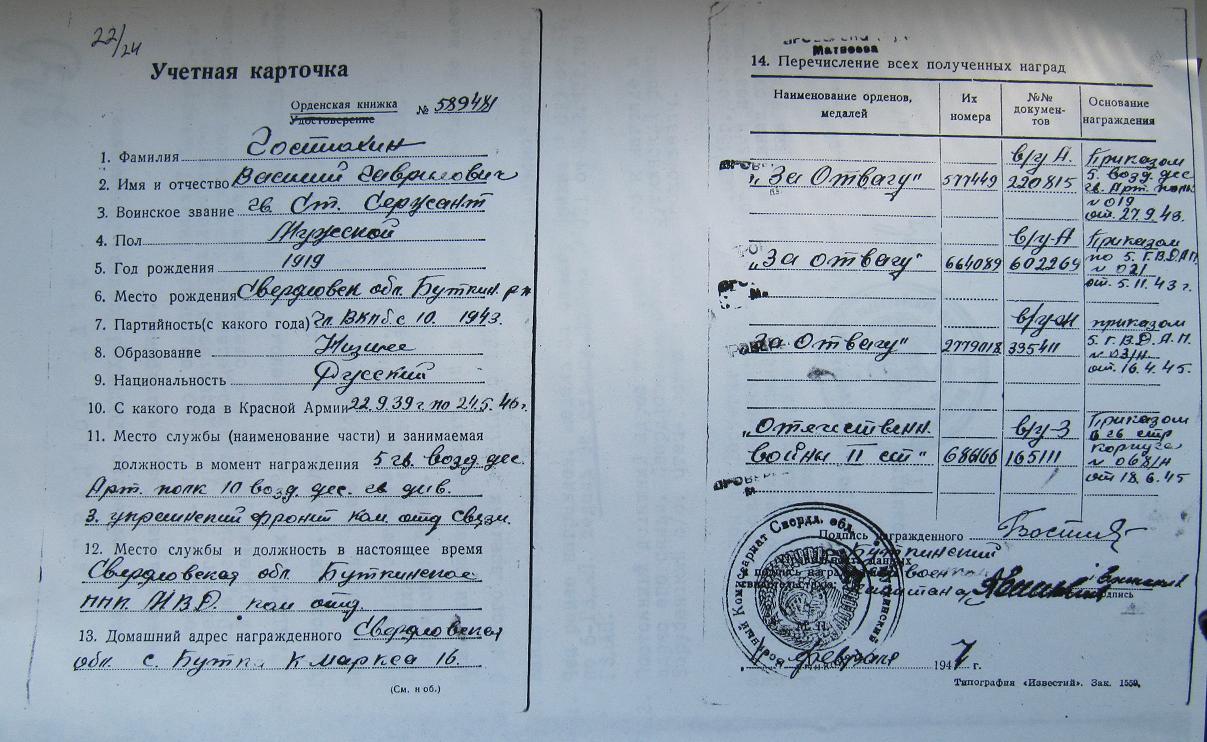 22/24
Учетная карточка
Орденская книжка
Удостоверение
№ 589481
1. Фамилия Гостюхин
2. Имя и отчество Василий Гаврилович
3. Воинское звание гв. Ст. Сержант
4. Пол Мужской
5. Год рождения 1919
6. Место рождения Свердловск обл. Буткин. р-н
7. Партийность(с какого года) чл. ВКПб. с 10. 1943.
8. Образование Низшее
9. Национальность Русский
10. С какого года в Красной Армии 22.9.39 г. по 24.5.46 г.
11. Место службы (наименование части) и занимаемая
должность в момент награждения 5 гв. возд. дес.
Арт. полк 10 возд. дес. гв. див.
3. украинский фронт ком. отд. связи.
12. Место службы и должность в настоящее время
Свердловская обл. Буткинское
МВД. ком. отд.
13. Домашний адрес награжденного Свердловская
обл. с. Бутка К Маркса 16.
(См. н об.)
Матвеева
14. Перечисление всех полученных наград
Наименование орденов, медалей
Их номера
№№ докумен-тов
Основание награждения
в/у А. Приказом
„За Отвагу" 577449 220815 5. возд. дес
гв. Арт. полк
№ 019
от. 27.9.43.
в/у-А Приказом
„За отвагу" 664089 602269 по 5. Г.В.Д.А.П.
№ 021
от. 5.11.43 г.
приказом
За Отвагу" 2779018 395411 5. Г. В. Д. А. П.
от. 16.4.45.
„Отечественн. в/у-З Приказом
войны II ст" 165111 гв стр
корпуса
№ 068/н
от 18.6.45
Подпись награжденного
Буткинский
Военный Комиссариат Свердл. обл.
февраля 1947 г.
Типография «Известий». Зак. 1559.